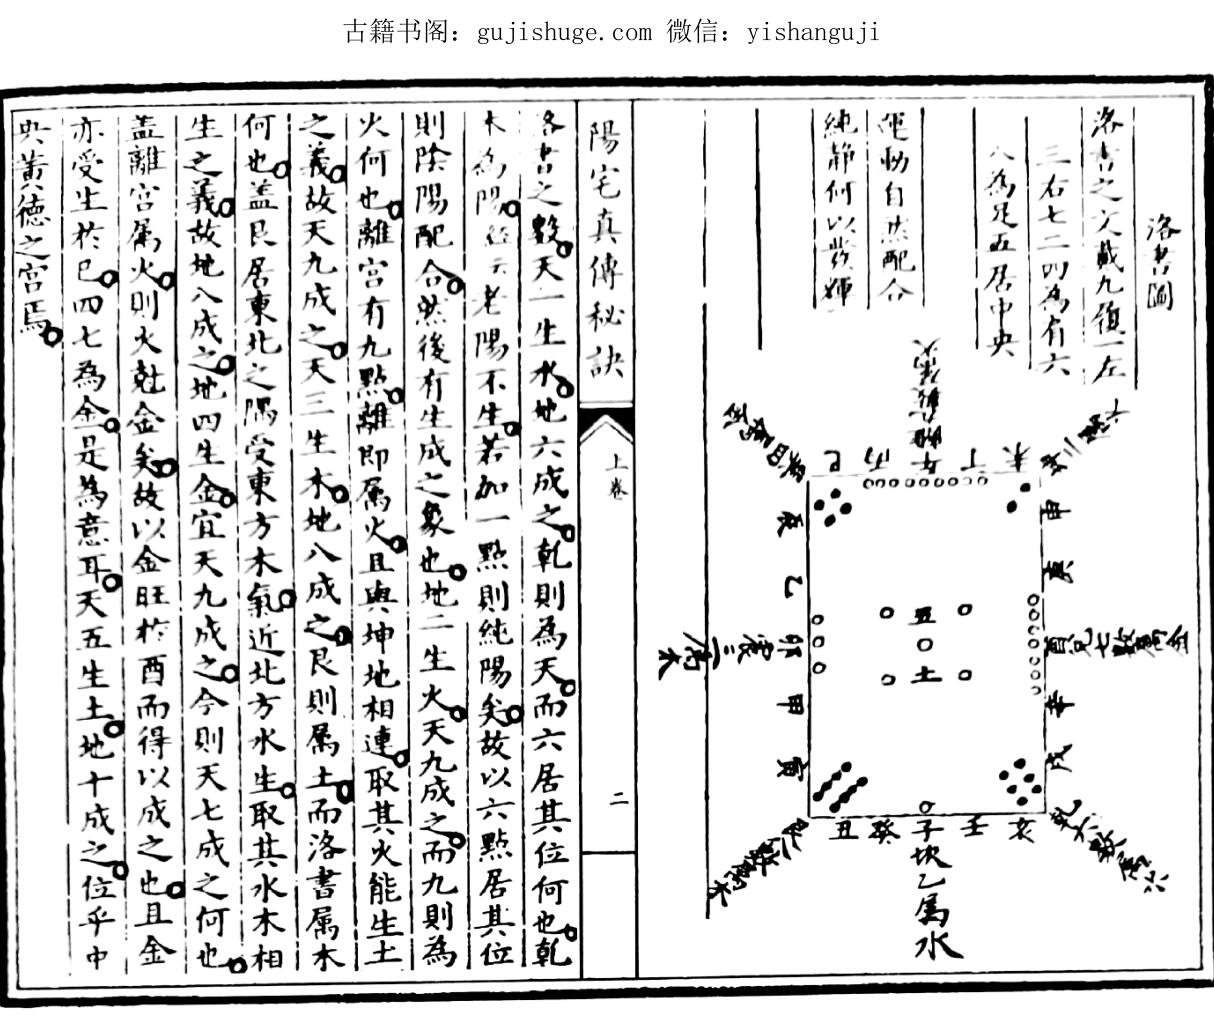 古籍书阁：gujishuge.com 微信：yishanguji
洛書圖
洛書之文戴九履一左
三右七二四為有六
八為足五居中央
運動自然配合
純静何以發輝
巳丙午丁未
申庚酉辛戌
辰乙卯甲寅
丑癸子壬亥
坎乙属水
五
土
陽宅真傳秘訣
上卷
二
洛書之數天一生水地六成之乾則為天而六居其位何也乾
為陽老陽不生若加一點則純陽矣故以六點居其位
則陰陽配合然後有生成之象也地二生火天九成之而九則為
火何也離宫有九點離即属火且與坤地相連取其火能生土
之義故天九成之天三生木地八成之艮則属土而洛書属木
何也盖艮居東北之隅受東方木氣近北方水生取其水木相
生之義故地八成之地四生金宜天九成之今則天七成之何也
盖離宫属火則火尅金矣故以金旺於酉而得以成之也且金
亦受生於巳四七為金是為意耳天五生土地十成之位乎中
央黄德之宫焉